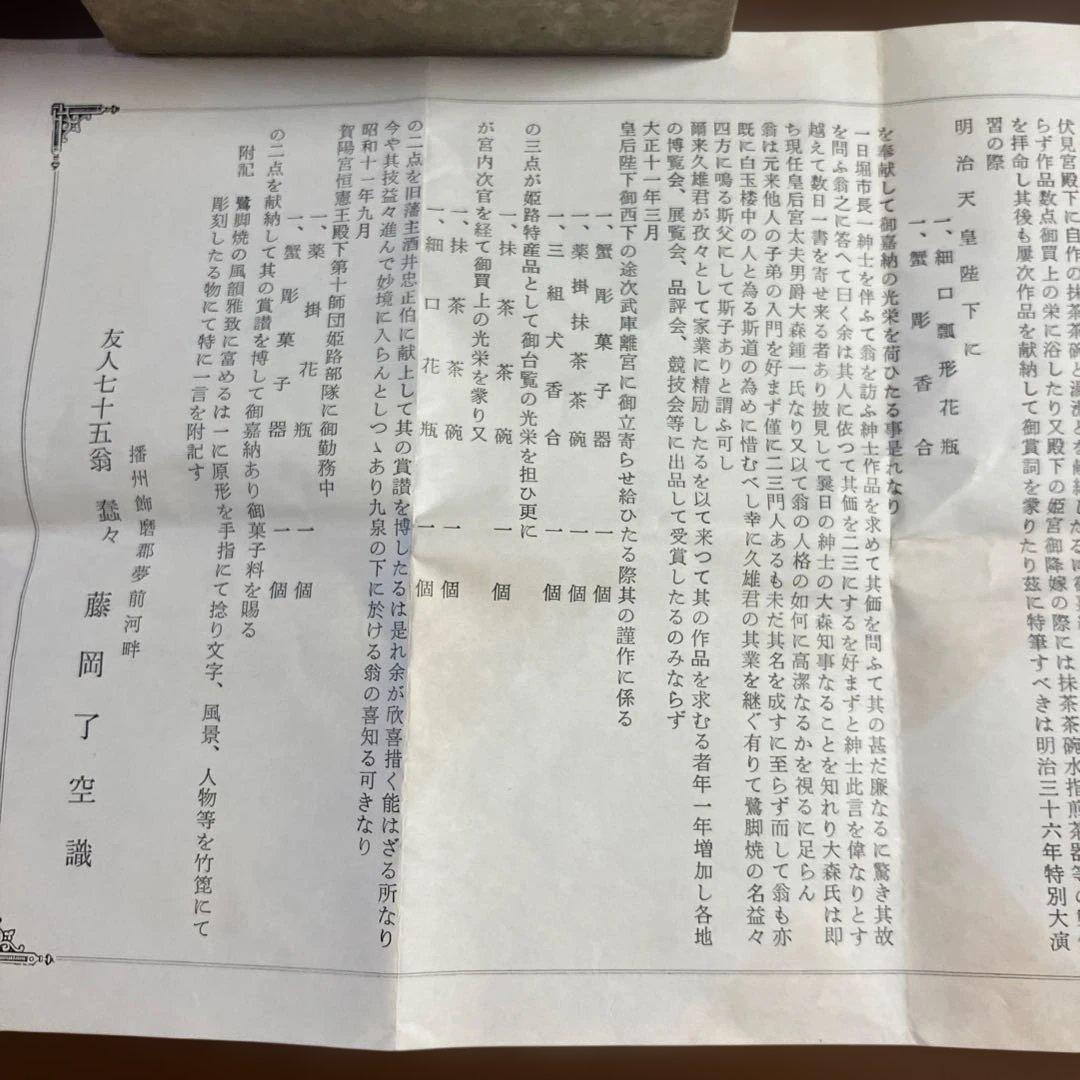 伏見宮殿下に自作の抹茶茶碗と湯
らず作品数点御買上の栄に浴したり又殿下の姫宮御降嫁の際には抹茶茶碗水指煎茶器等の
を拝命し其後も屢次作品を献納して御賞詞を蒙りたり茲に特筆すべきは明治三十六年特別大演
習の際
明治天皇陛下に
一、細口瓢形花瓶
一、蟹彫香合
を奉献して御嘉納の光栄を荷ひたる事是れなり
一日堀市長一紳士を伴ふて翁を訪ふ紳士作品を求めて其価を問ふて其の甚だ廉なるに驚き其故
を問ふ翁之に答へて曰く余は其人に依つて其価を二三にするを好まずと紳士此言を偉なりとす
越えて数日一書を寄せ来る者あり披見して曩日の紳士の大森知事なることを知れり大森氏は即
ち現任皇后宮太夫男爵大森鍾一氏なり又以て翁の人格の如何に高潔なるかを視るに足らん
翁は元来他人の子弟の入門を好まず僅に二三門人あるも未だ其名を成すに至らず而して翁も亦
既に白玉楼中の人と為る斯道の為めに惜むべし幸に久雄君の其業を継ぐ有りて鷺脚焼の名益々
四方に鳴る斯父にして斯子ありと謂ふ可し
爾来久雄君が孜々として家業に精励したるを以て来つて其の作品を求むる者年一年増加し各地
の博覧会、展覧会、品評会、競技会等に出品して受賞したるのみならず
大正十一年三月
皇后陛下御西下の途次武庫離宮に御立寄らせ給ひたる際其の謹作に係る
一、蟹彫菓子器 一個
一、薬掛抹茶茶碗 一個
一、三組犬香合 一個
の三点が姫路特産品として御台覧の光栄を担ひ更に
一、抹茶茶碗 一個
が宮内次官を経て御買上の光栄を蒙り又
一、抹茶茶碗 一個
一、細口花瓶 一個
の二点を旧藩主酒井忠正伯に献上して其の賞讃を博したるは是れ余が欣喜措く能はざる所なり
今や其技益々進んで妙境に入らんとしつゝあり九泉の下に於ける翁の喜知る可きなり
昭和十一年九月
賀陽宮恒憲王殿下第十師団姫路部隊に御勤務中
一、薬掛花瓶 一個
一、蟹彫菓子器 一個
の二点を献納して其の賞讃を博して御嘉納あり御菓子料を賜る
附記 鷺脚焼の風韻雅致に富めるは一に原形を手指にて捻り文字、風景、人物等を竹箆にて
彫刻したる物にて特に一言を附記す
播州飾磨郡夢前河畔
友人七十五翁 蠢々 藤岡了空識